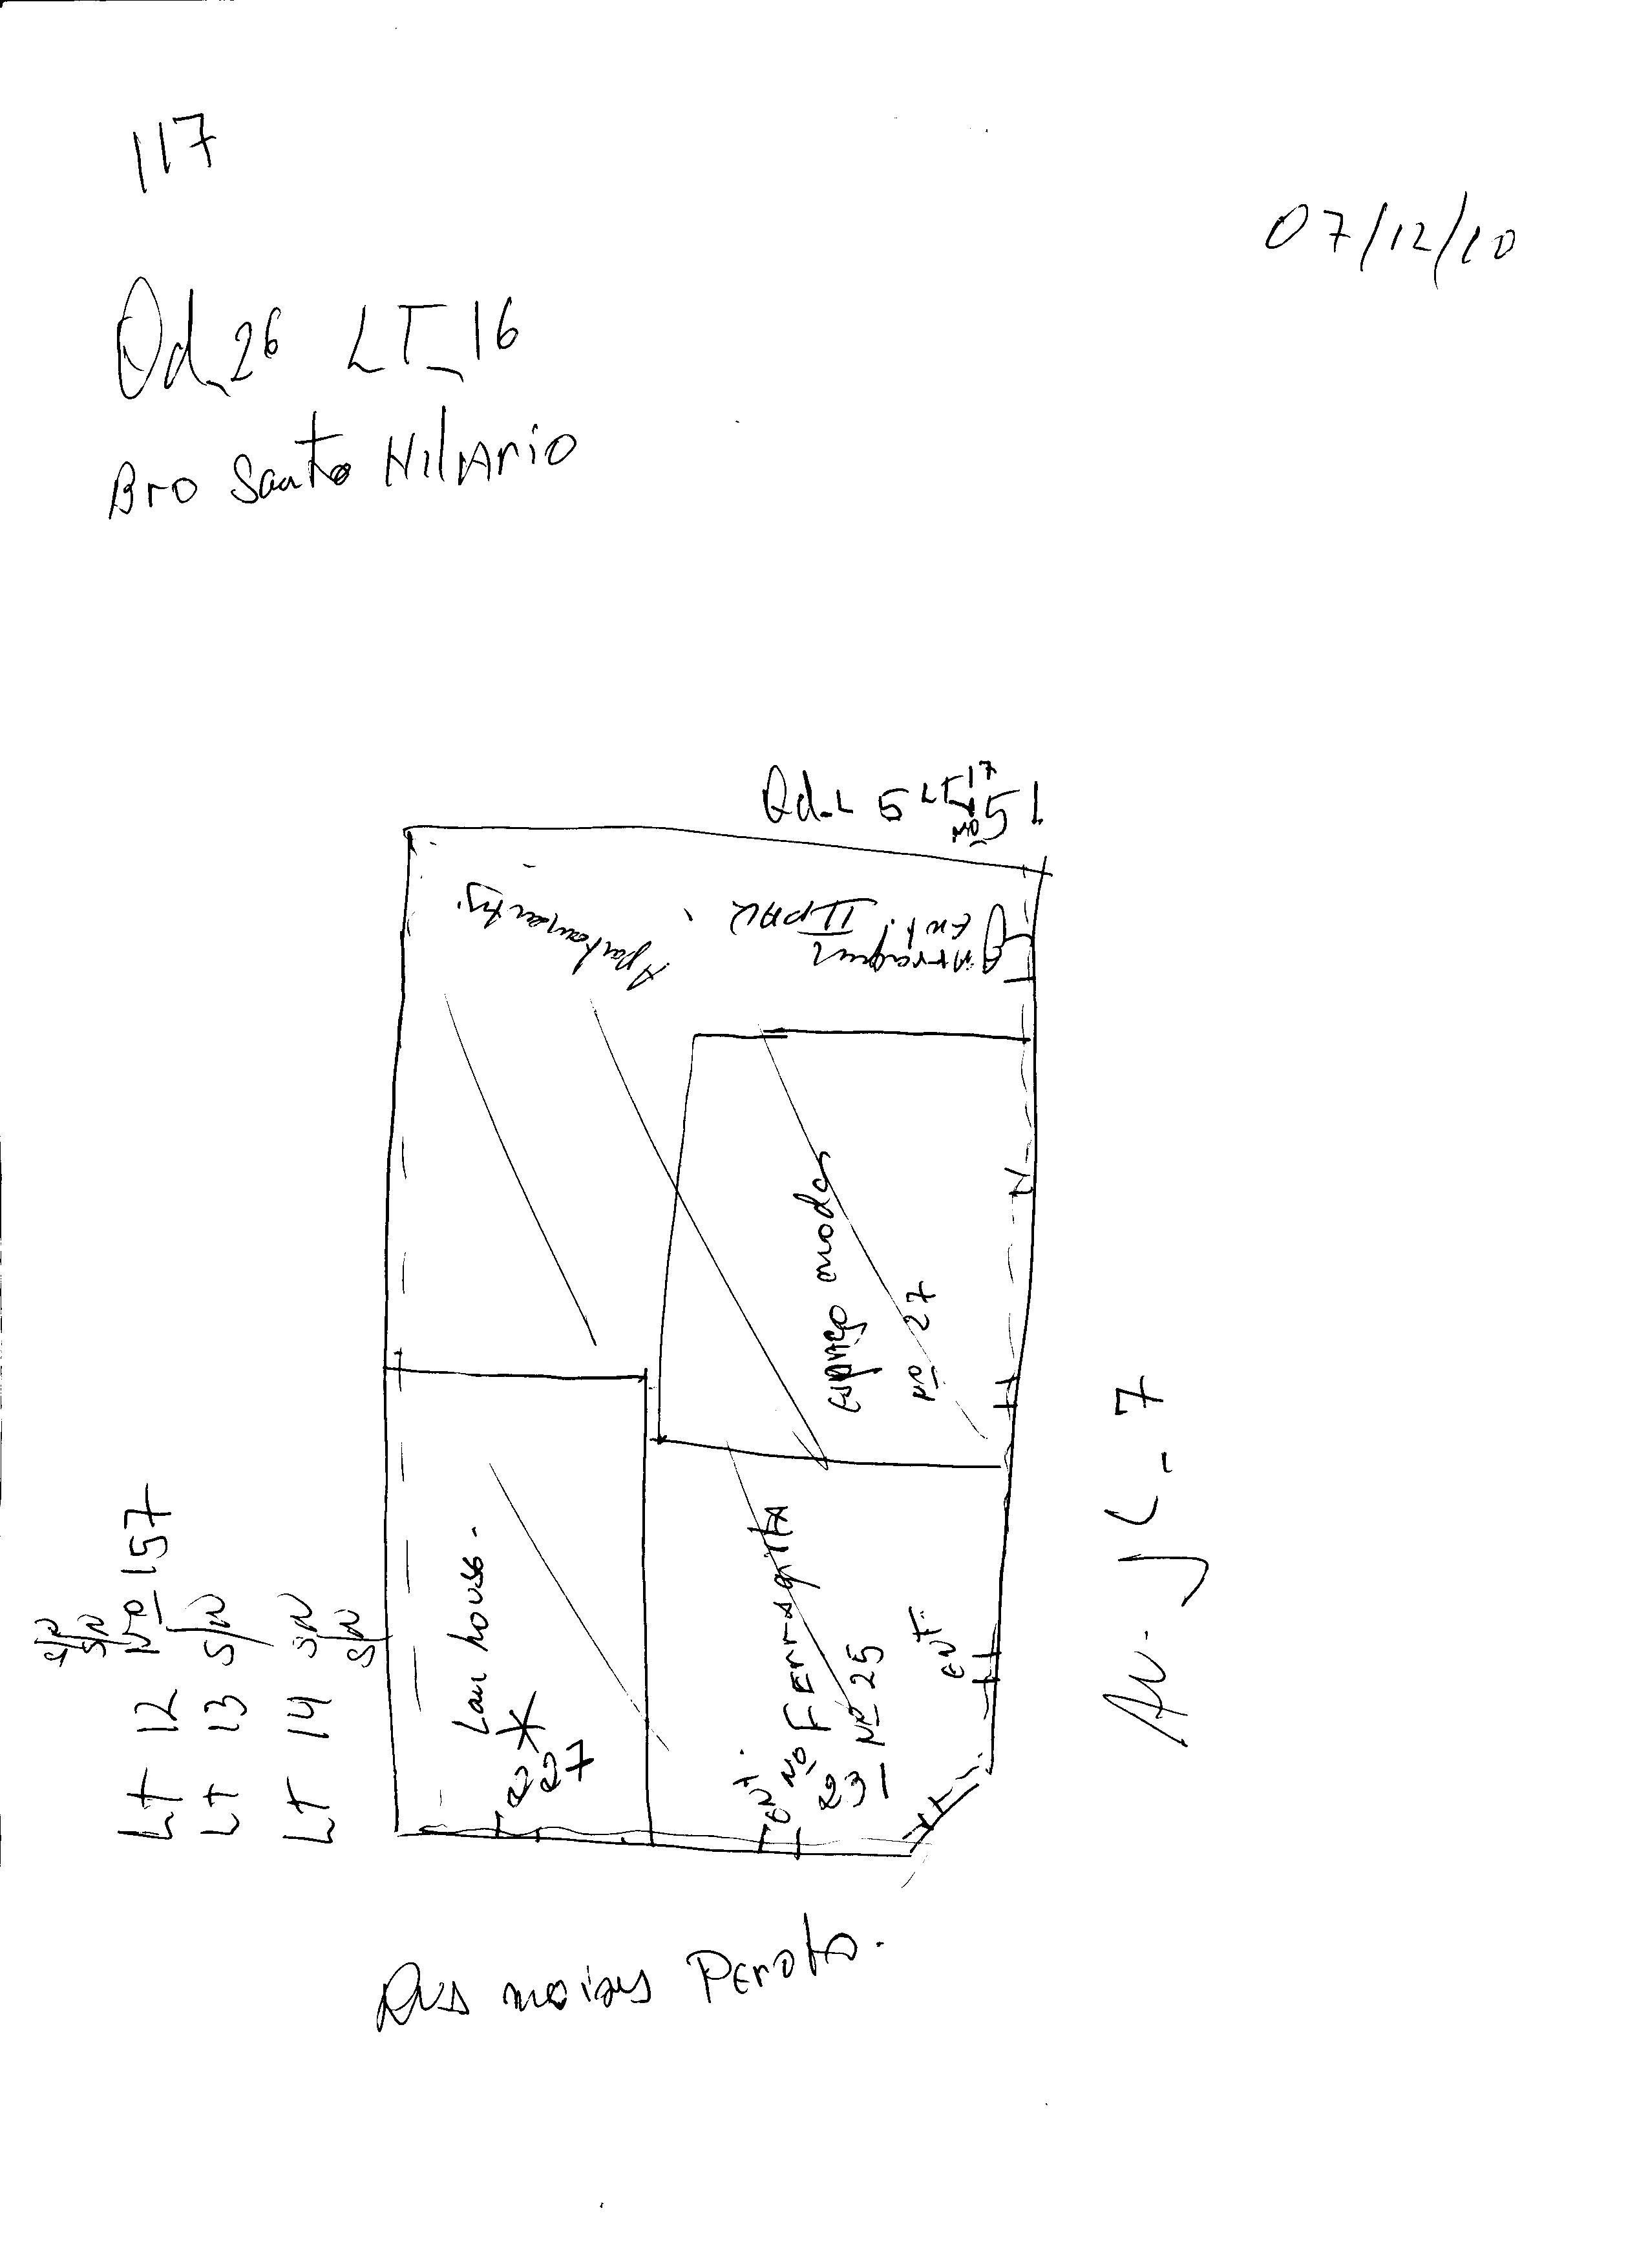 117
07/12/10
Qd_26 LT_16
Bro Santo HilArio
Qd_L 5 LT 17
Nº 51
Apartamentos.
II PAV.
Ent.
espaço moda
Nº 27
LT 12 Nº 157
LT 13 S/N
LT 14 S/N
S/N
Lan house.
227
ENT.
Nº FErrAgistA
231 Nº 25
ENT.
Av. JL-7
RuA moises PEroto.